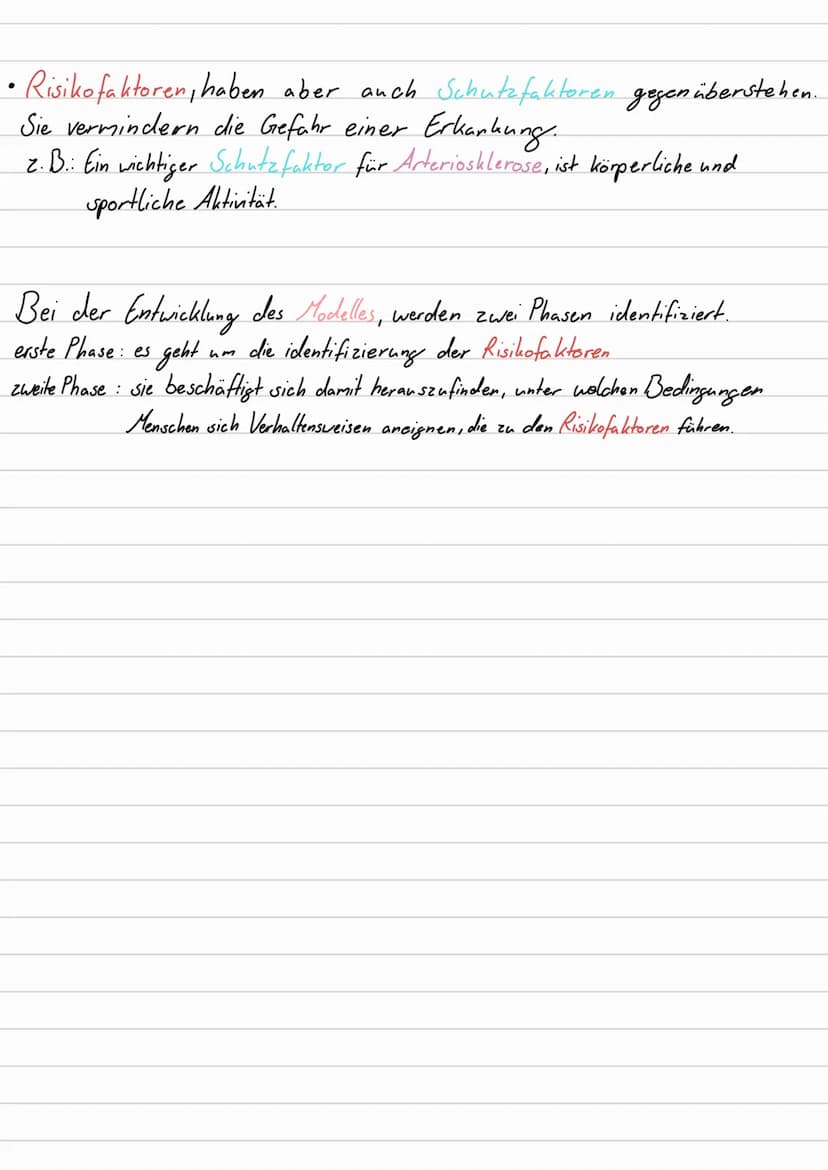 • Risikofaktoren, haben aber auch Schutzfaktoren gegenüberstehen.
Sie vermindern die Gefahr einer Erkankung.
z.B.: Ein wichtiger Schutzfaktor für Arteriosklerose, ist körperliche und
sportliche Aktivität.
Bei der Entwicklung des Modelles, werden zwei Phasen identifiziert.
erste Phase: es geht um die identifizierung der Risikofaktoren
zweite Phase: sie beschäftigt sich damit herauszufinden, unter welchen Bedingungen
Menschen sich Verhaltensweisen aneignen, die zu den Risikofaktoren führen.